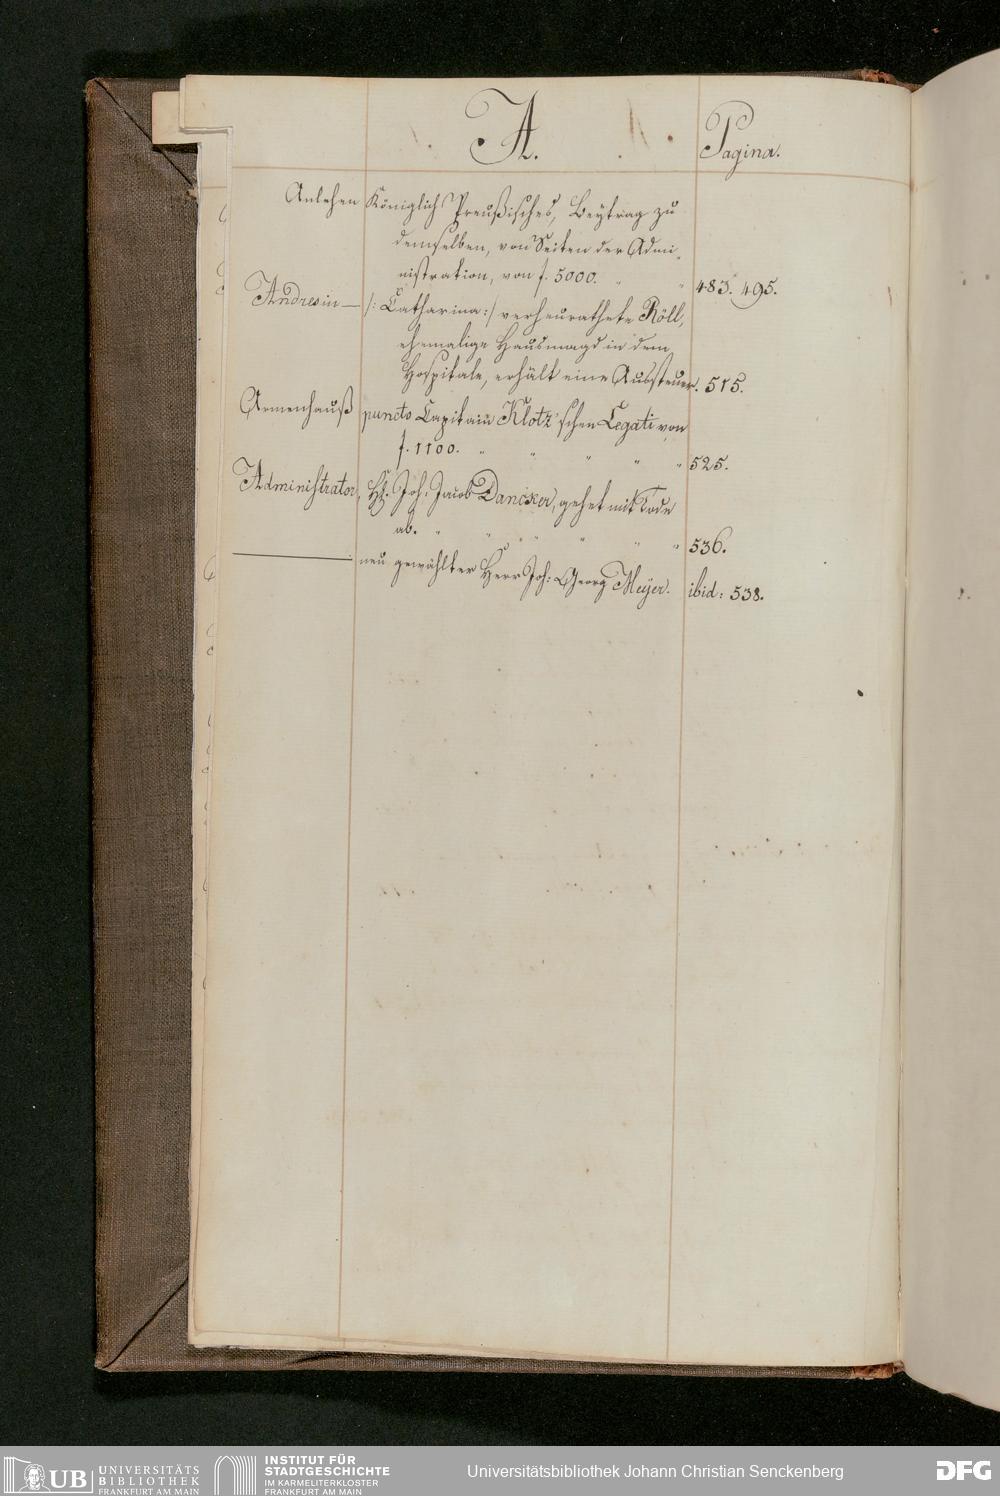 A.
Pagina.
Anlehen Königlich Preußisches, Beytrag zu
demselben, von Seiten der Admi-
nistration, von f. 5000. " " 483. 495.
Andresin — /: Catharina :/ verheurathete Röll,
ehemalige Hausmagd in dem
Hospitale, erhält eine Aussteuer. 515.
Armenhauß puncto Capitain Klotz'schen Legati von
f. 1100. " " " " " 525.
Administrator, H. Joh: Jacob Dancker, gehet mit Tode
ab. " " " " " " 536.
——— neu gewählter Herr Joh: Georg Meÿer. ibid: 538.
UB UNIVERSITÄTS
BIBLIOTHEK
FRANKFURT AM MAIN
INSTITUT FÜR
STADTGESCHICHTE
IM KARMELITERKLOSTER
FRANKFURT AM MAIN
Universitätsbibliothek Johann Christian Senckenberg
DFG